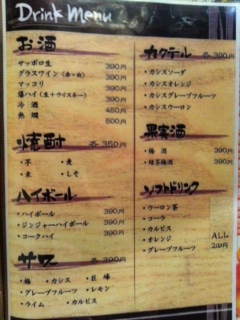 Drink Menu
お酒
サッポロ生 390円
グラスワイン(赤・白) 390円
マッコリ 390円
酎ハイ(生+ウイスキー) 390円
冷酒 450円
熱燗 500円
焼酎 各350円
・芋 ・麦
・米 ・しそ
ハイボール
・ハイボール 390円
・ジンジャーハイボール 390円
・コークハイ 390円
サワー 各390円
・梅 ・カシス ・巨峰
・グレープフルーツ ・レモン
・ライム ・カルピス
カクテル 各390円
・カシスソーダ
・カシスオレンジ
・カシスグレープフルーツ
・カシスウーロン
果実酒
・梅酒 390円
・緑茶梅酒 390円
ソフトドリンク
・ウーロン茶
・コーラ
・カルピス
・オレンジ ALL
・グレープフルーツ 200円